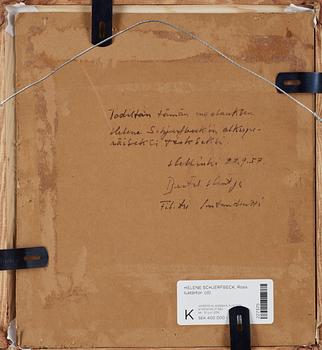 Todistan tämän maalauksen
Helene Schjerfbeckin alkupe-
räiseksi teokseksi
Helsinki 27.9.57.
Bertel Hintze
Fil. tri Intendentti
HELENE SCHJERFBECK, Rosa
K
SEK 400 000